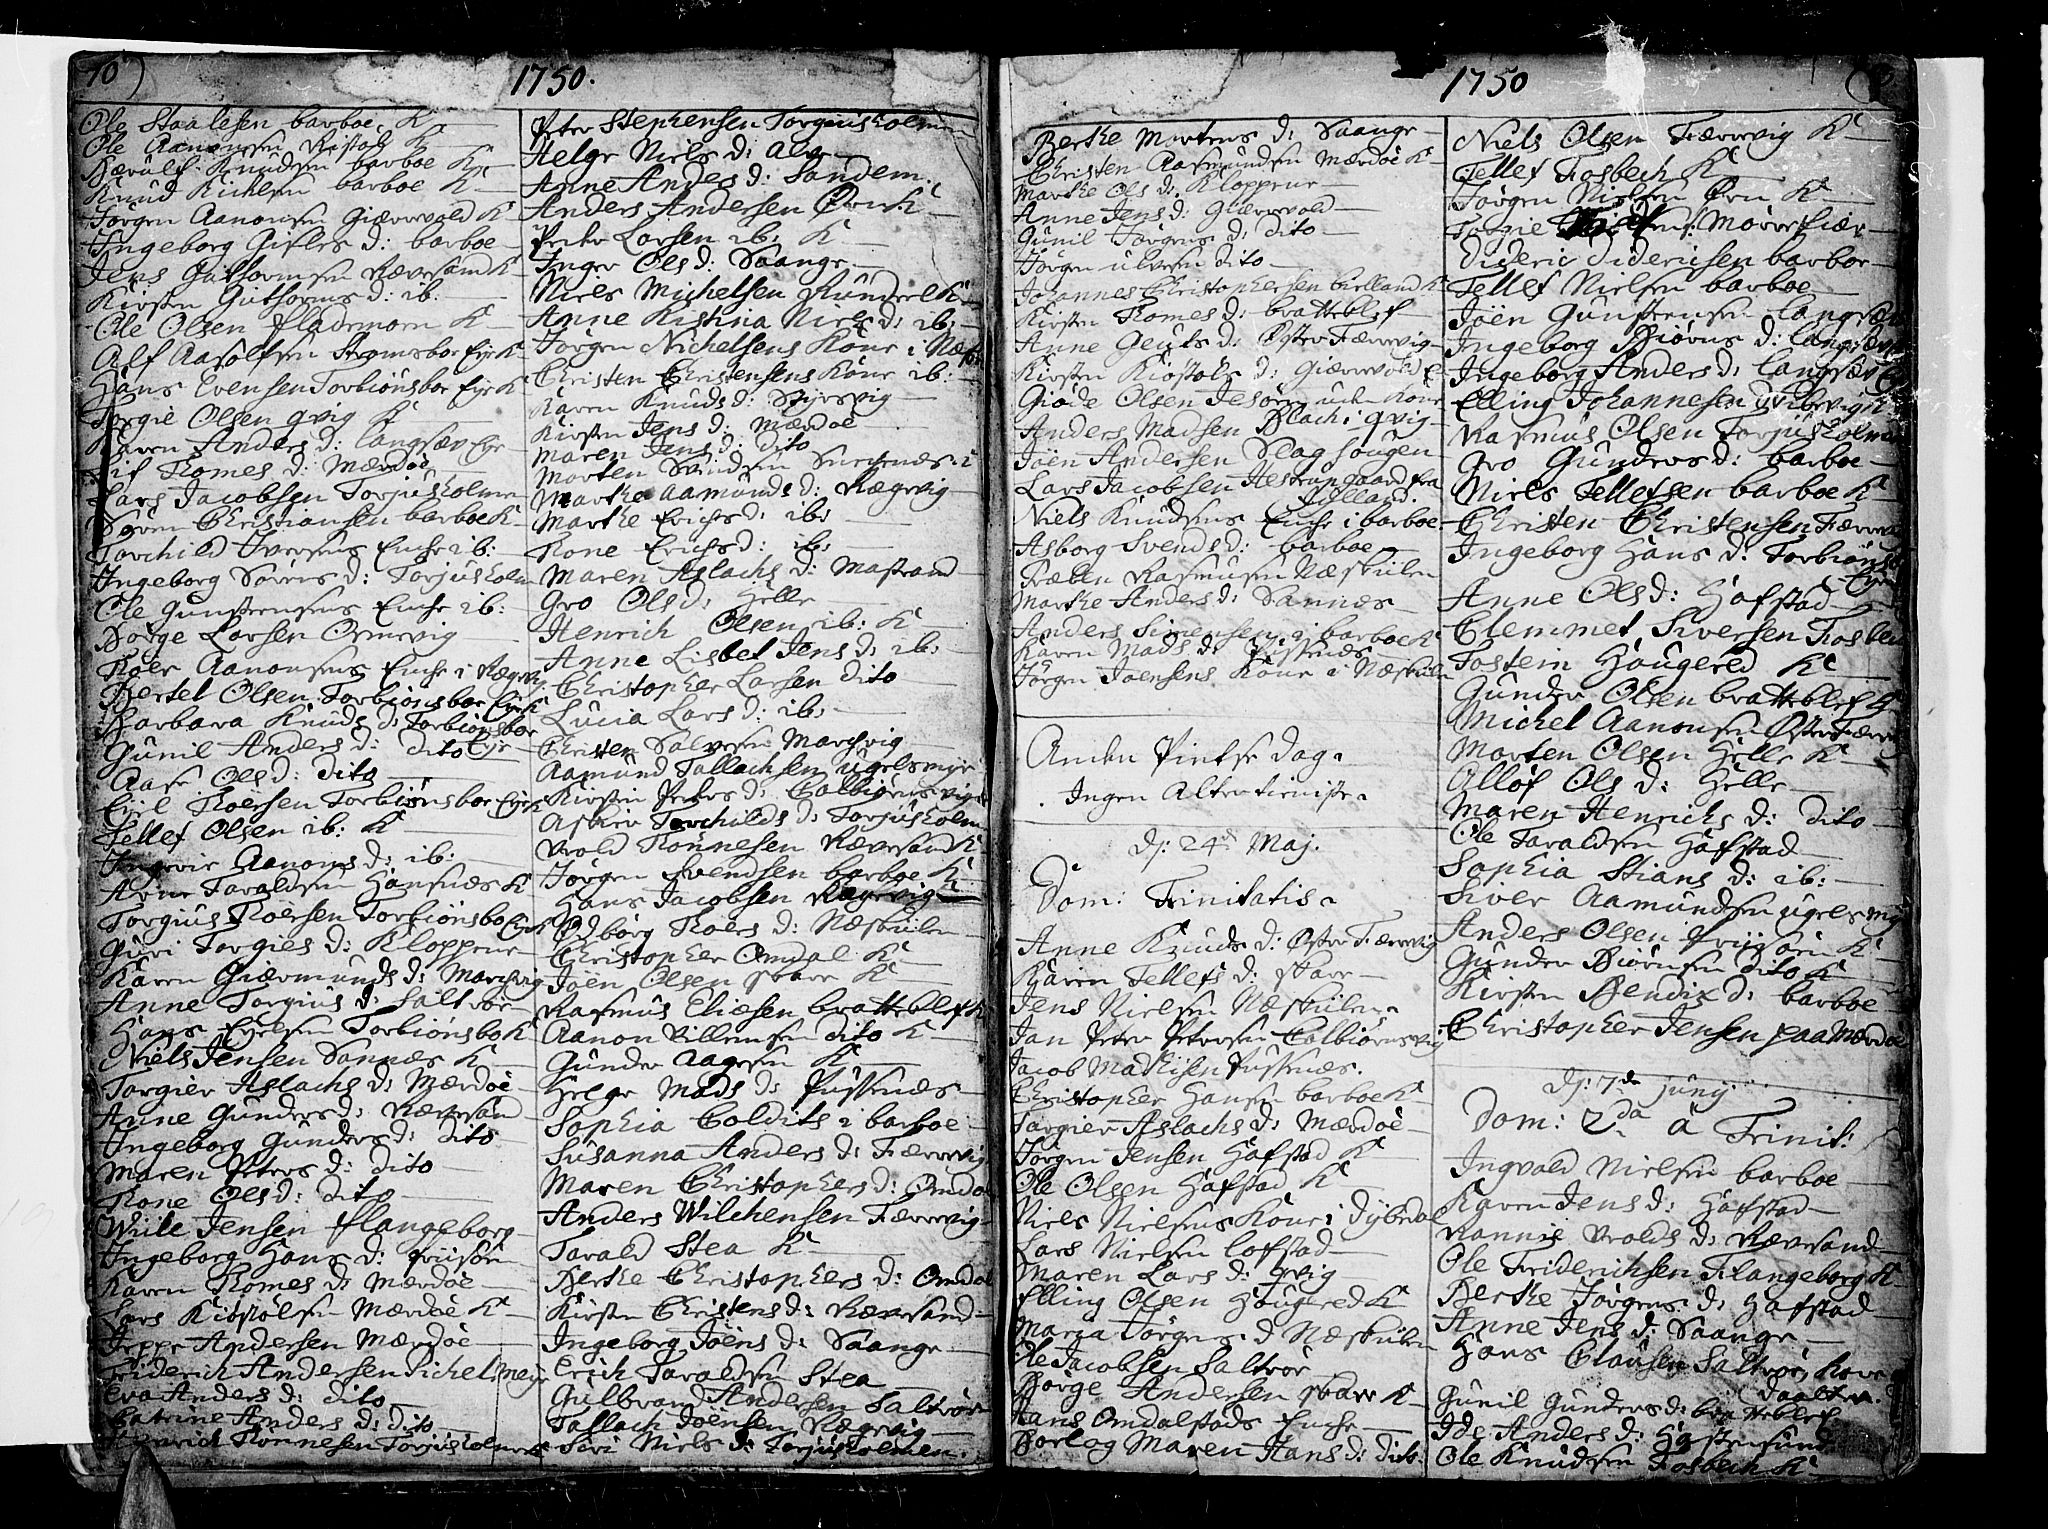 10)
1750.
Ole Staalesen barboe. K
Ole Aanonsen Ristøl K
Knudsen barboe K
Knud barboe K
Jørgen Aanonsen Giærrevold K
Ingeborg Gifles d: barboe
Jens Guthormsen Rævesand K
Kirsten Guthorms d: ib.
Ole Olsen flademoen K
Alf Aasolfsen Eye K
Hans Evensen Torbiønsboe Eye K
Torgie Olsen qvig K
Karen Anders d: Langsæv Eye
Tomes d: Mærdøe
Lars Jacobsen Torjusholme
Søren Christiansen barboe K
Torchild Iversens Enche ib:
Ingeborg Sørens d: Torjusholm
Ole Gunstensens Enche ib:
Børge Larsen Ormevig
Roer Aanonsens Enche i Rægevig
Bertel Olsen Torbiønsboe Eye K
Barbara Knuds d: Torbiønsboe Eye
Gunil Anders d: dito
Aase Ols d: dito
Egil Roersen Torbiønsboe Eye K
Tellef Olsen ib: K
Aanons d: ib:
Arne Taraldsen Hansnæs K
Torgius Roersen Torbiønsbo Eye K
Guri Torgies d: Kloppene
Karen Giærmunds d: Marchvig
Anne Torgius d: Saltrøe
Hans Eyelsen Torbiønsbo K
Niels Jensen Sannæs K
Torgier Aslachs d: Mærdøe
Anne Gunders d: Rævesand
Ingeborg Gunders d: dito
Maren Peters d: dito
Tone Ols d: dito
Wille Jensen flangeborg
Ingeborg Hans d: friisøe
Karen Tomes d: Mærdøe
Lars Kiøstølsen Mærdøe K
Jeppe Andersen Mærdøe
Friderich Andersen Pichelsmeyr
Eva Anders d: dito
Catrine Anders d: dito
Henrich Tønnesen Torjusholmen
Peter Stephensen Torgiusholmen
Helge Niels d: Alve
Anne Anders d: Sandem.
Anders Andersen Øen K
Peter Larsen ib: K
Inger Ols d: Saange
Niels Michelsen Rundeel K
Anne Kistina Niels d: ib:
Jørgen Nichelsens Kone i Næs
Christen Christensens Kone ib:
Karen Knuds d: Styrsvig
Kirsten Jens d: Mærdøe
Maren Jens d: dito
Morten Svendsen Snevenæs.
Marthe Aamunds d: Rægevig
Marthe Erichs d: ib:
Tone Erichs d: ib:
Maren Aslachs d: Mastrand
Gro Ols d: Helle
Henrich Olsen ib: K
Anne Lisbet Jens d: ib:
Christopher Larsen dito
Lucia Lars d: ib:
Christen Salvesen Marchvig
Aamund Tallachsen Ugelsmyr
Kirsten Peters d: Colbiørnsvig
Torchilds d: Torjusholm
Vrold Tønnesen Rævesand K
Jørgen Svendsen barboe K
Hans Jacobsen Rægevig K
Odbørg Roers d: Næskilen
Christopher Omdal K
Joen Olsen skare K
Rasmus Eliesen bratteklef K
Aanon Villemsen dito K
Gunder Aagesen K
Helge Mads d: Pussnæs
Sophia Colditz i barboe
Susanna Anders d: Færrevig
Maren Christophers d: Omdal
Anders Wilchensen Færrevig
Tarald Stea K
Berthe Christophers d: Omdal
Kirsten Christens d: Rævesand
Ingeborg Joens d: Saange
Erich Taraldsen Stea
Gulbrand Andersen Saltrøe
Tallach Joensen Rægevig
Siri Niels d: Torjusholmen.
1750
Berthe Mortens d: Saange
Christen Aasmundsen Mærdøe K
Marthe Ols d: Kloppene
Anne Jens d: Giærrevold
Gunil Jørgens d: dito
Jørgen Ulvesen dito
Johannes Christophersen bielland K
Kirsten Tomes d: bratteklef
Anne Geuts d: Øster Færrevig
Kirsten Kiøstols d: Giærrevold
Giøde Olsen Jesøe uden Kone
Anders Madsen Blach i qvig
Joen Andersen Slaghougen
Lars Jacobsen Hestrupgaard fra
Jylland.
Niels Knudsens Enche i barboe
Asborg Svends d: barboe
Preben Rasmusen Næskilen
Marthe Anders d: Sannæs
Anders Simensen i barboe K
Karen Mads d: Pussnæs
Jørgen Joensens Kone i Næskilen
Anden Pintse dag.
Ingen Altertieniste.
D: 24de Maj.
Dom: Trinitatis.
Anne Knuds d: Øster Færrevig
Karen Tellefs d: skare
Jens Nielsen Næskilen
Jan Peter Petersen Colbiørnsvig
Jacob Mathisen Pussnæs.
Christopher Hansen barboe K
Torgier Aslachs d: Mærdøe
Jørgen Jensen Hafstad K
Ole Olsen Hafstad K
Niels Nielsens Kone i Dybedal
Lars Nielsen Lofstad
Maren Lars d: qvig
Elling Olsen Hougered K
Maria Jørgens d Næskilen
Ole Jacobsen Saltrøe
Børge Andersen skare K
Hans Omdalstads Enche
Dorlog Maren Hans d: dito.
Niels Olsen Færrevig K
Tellef Fosbech K
Jørgen Nielsen Øen K
Torgie Morrefiær
Dideric Diderichsen barboe
Tellef Nielsen barboe
Joen Gunstensen Langsæv
Ingeborg Biørns d: Langsæv
Ingeborg Anders d: Langsæv Eye
Elling Johannesen Vibevig K
Rasmus Olsen Torjusholmen
Gro Gunders d: barboe
Niels Tellefsen barboe K
Christen Christensen Færrevig
Ingeborg Hans d: Torbiønsb
Eye
Anne Ols d: Hafstad
Clemmet Siversen Fosbech
Tostein Hougered K
Gunder Olsen bratteklef K
Michel Aanonsen Øster Færrevig
Morten Olsen Helle K
Alløf Ols d: Helle
Maren Henrichs d: dito
Ole Taraldsen Hafstad
Sophia Stians d: ib:
Siver Aamundsen Ugelsmyr
Anders Olsen friisøe K
Gunder Biørnsen dito K
Kirsten Bendix d: barboe
Christopher Jensen paa Mærdøe
D: 7de Junij
Dom: 2da a Trinit:
Ingvald Nielsen barboe
Karen Jens d: Hafstad
Rannie Vrolds d: Rævesand
Ole Friderichsen Flangeborg K
Berthe Jørgens d: Hafstad
Anne Jens d: Saange
Hans Clausen Saltrøe, Kone
Gunil Gunders d: bratteklef.
Ide Anders d: Hastensund
Ole Knudsen Fosbech K